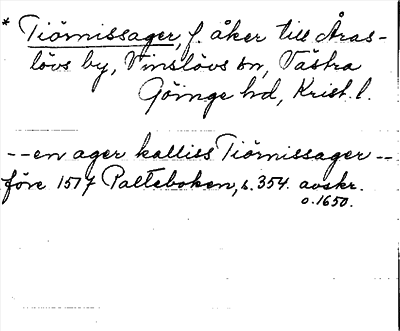 * Tiörnissager, f. åker till Åras-
lövs by, Vinslövs sn, Västra
Göinge hd, Krist. l.
--en ager kalliss Tiörnissager --
före 1517 Palteboken, s. 354. avskr.
o. 1650.